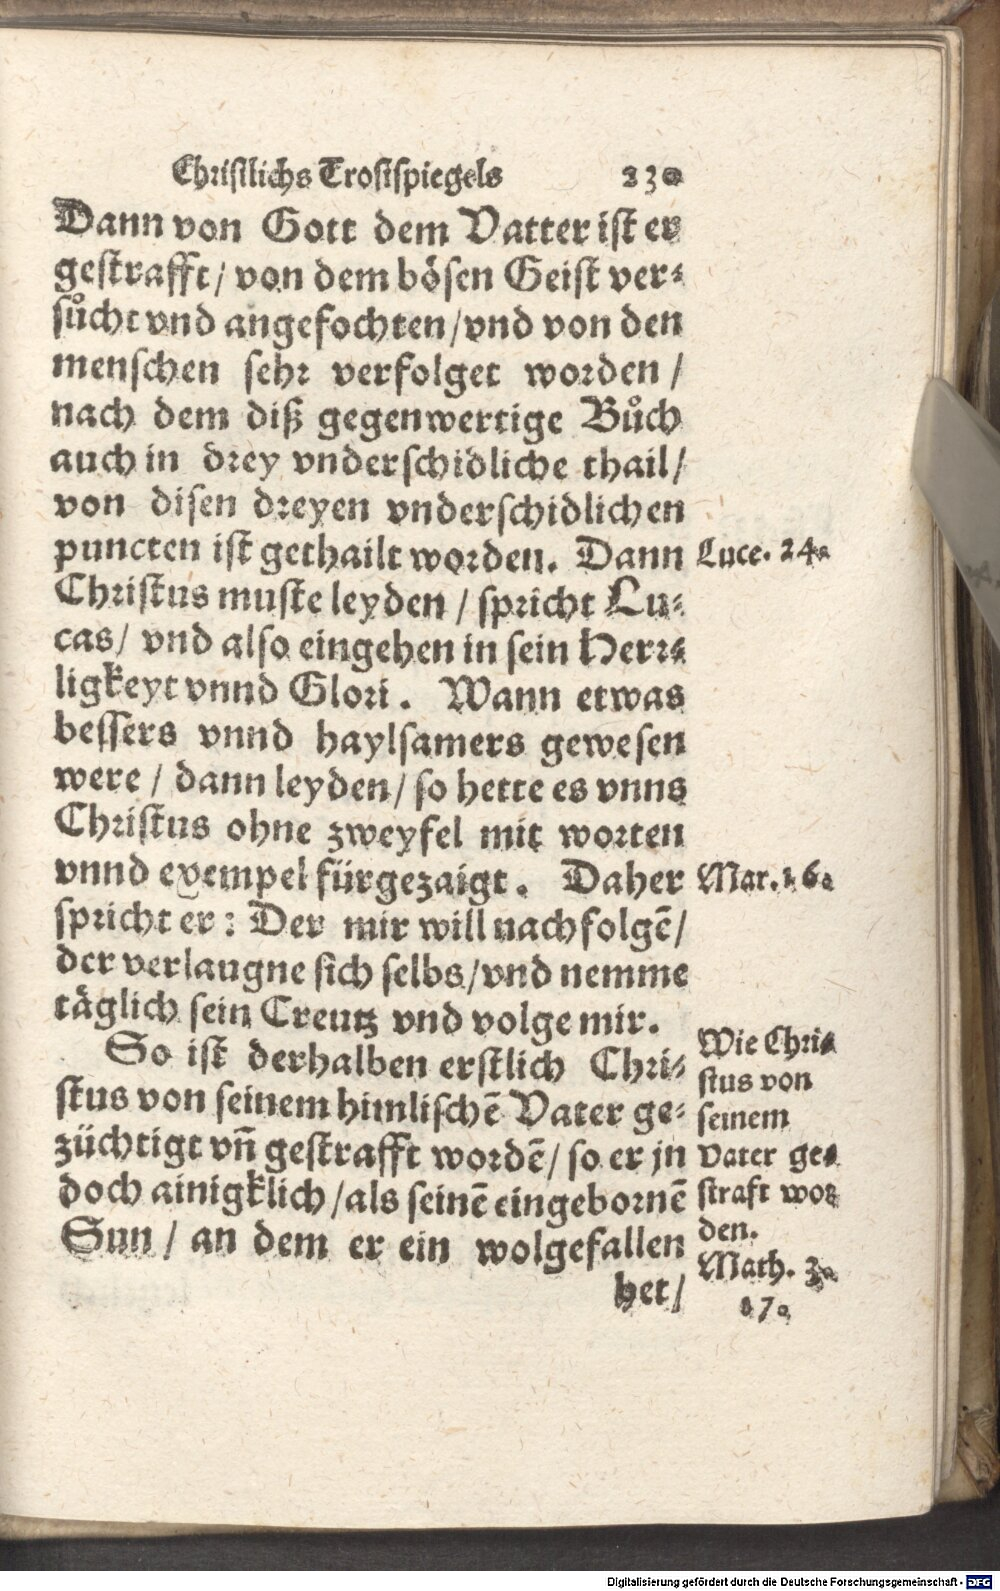 Christlichs Trostspiegels 230
Dann von Gott dem Vatter ist er
gestrafft / von dem bösen Geist ver⸗
sůcht vnd angefochten / vnd von den
menschen sehr verfolget worden /
nach dem diß gegenwertige Bůch
auch in drey vnderschidliche thail /
von disen dreyen vnderschidlichen
puncten ist gethailt worden. Dann
Luce. 24.
Christus muste leyden / spricht Lu⸗
cas / vnd also eingehen in sein Herr⸗
ligkeyt vnnd Glori. Wann etwas
bessers vnnd haylsamers gewesen
were / dann leyden / so hette es vnns
Christus ohne zweyfel mit worten
vnnd exempel fürgezaigt. Daher
Mar. 16.
spricht er: Der mir will nachfolgẽ /
der verlaugne sich selbs / vnd nemme
täglich sein Creutz vnd volge mir.
So ist derhalben erstlich Chri⸗
stus von seinem himlischẽ Vater ge⸗
züchtigt vñ gestrafft wordẽ / so er jn
doch ainigklich / als seinẽ eingebornẽ
Sun / an dem er ein wolgefallen
het /
Wie Chri⸗
stus von
seinem
Vater ge⸗
straft wor
den.
Math. 3.
17.
Digitalisierung gefördert durch die Deutsche Forschungsgemeinschaft - DFG